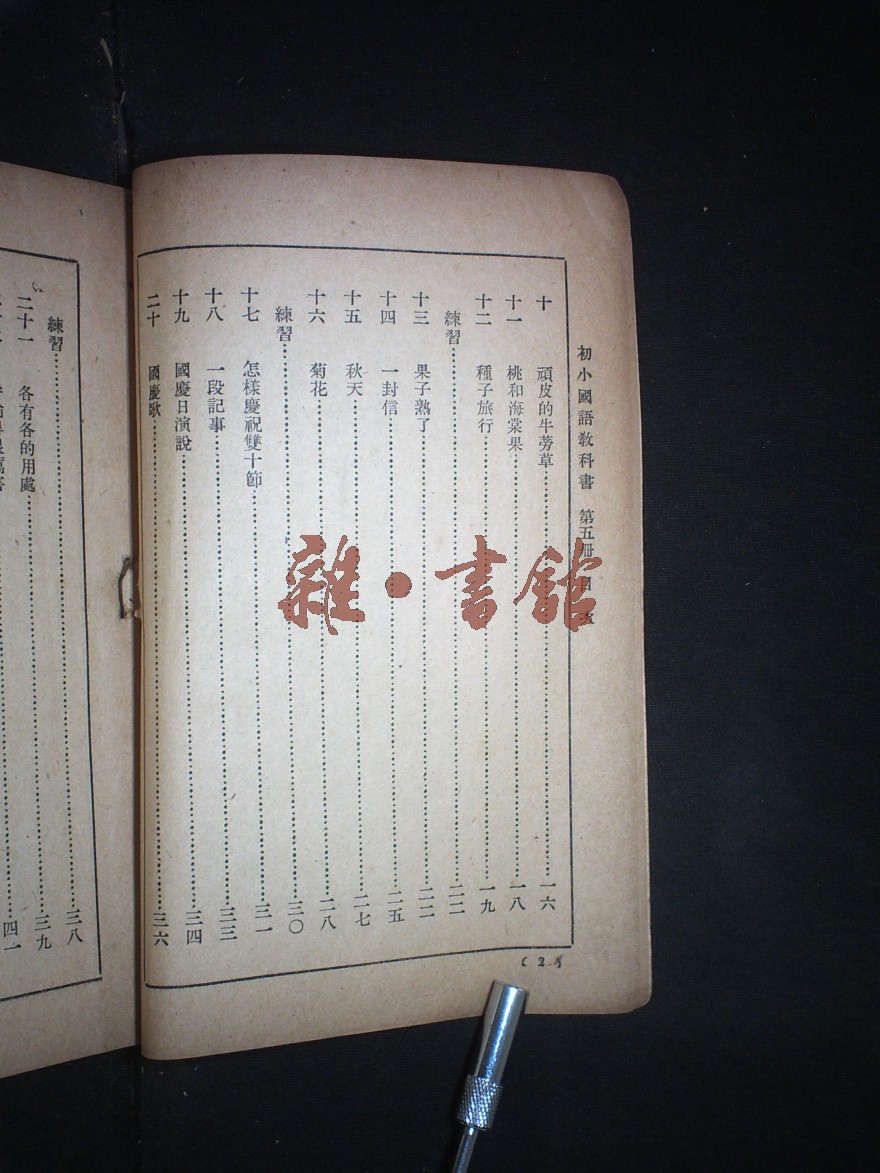 初小國語教科書　第五冊　目次
十　頑皮的牛蒡草……一六
十一　桃和海棠果……一八
十二　種子旅行……一九
練習……二二
十三　果子熟了……二二
十四　一封信……二五
十五　秋天……二七
十六　菊花……二八
練習……三〇
十七　怎樣慶祝雙十節……三一
十八　一段記事……三三
十九　國慶日演說……三四
二十　國慶歌……三六
(2)
練習……三八
二十一　各有各的用處……三九
四一
雜·書館